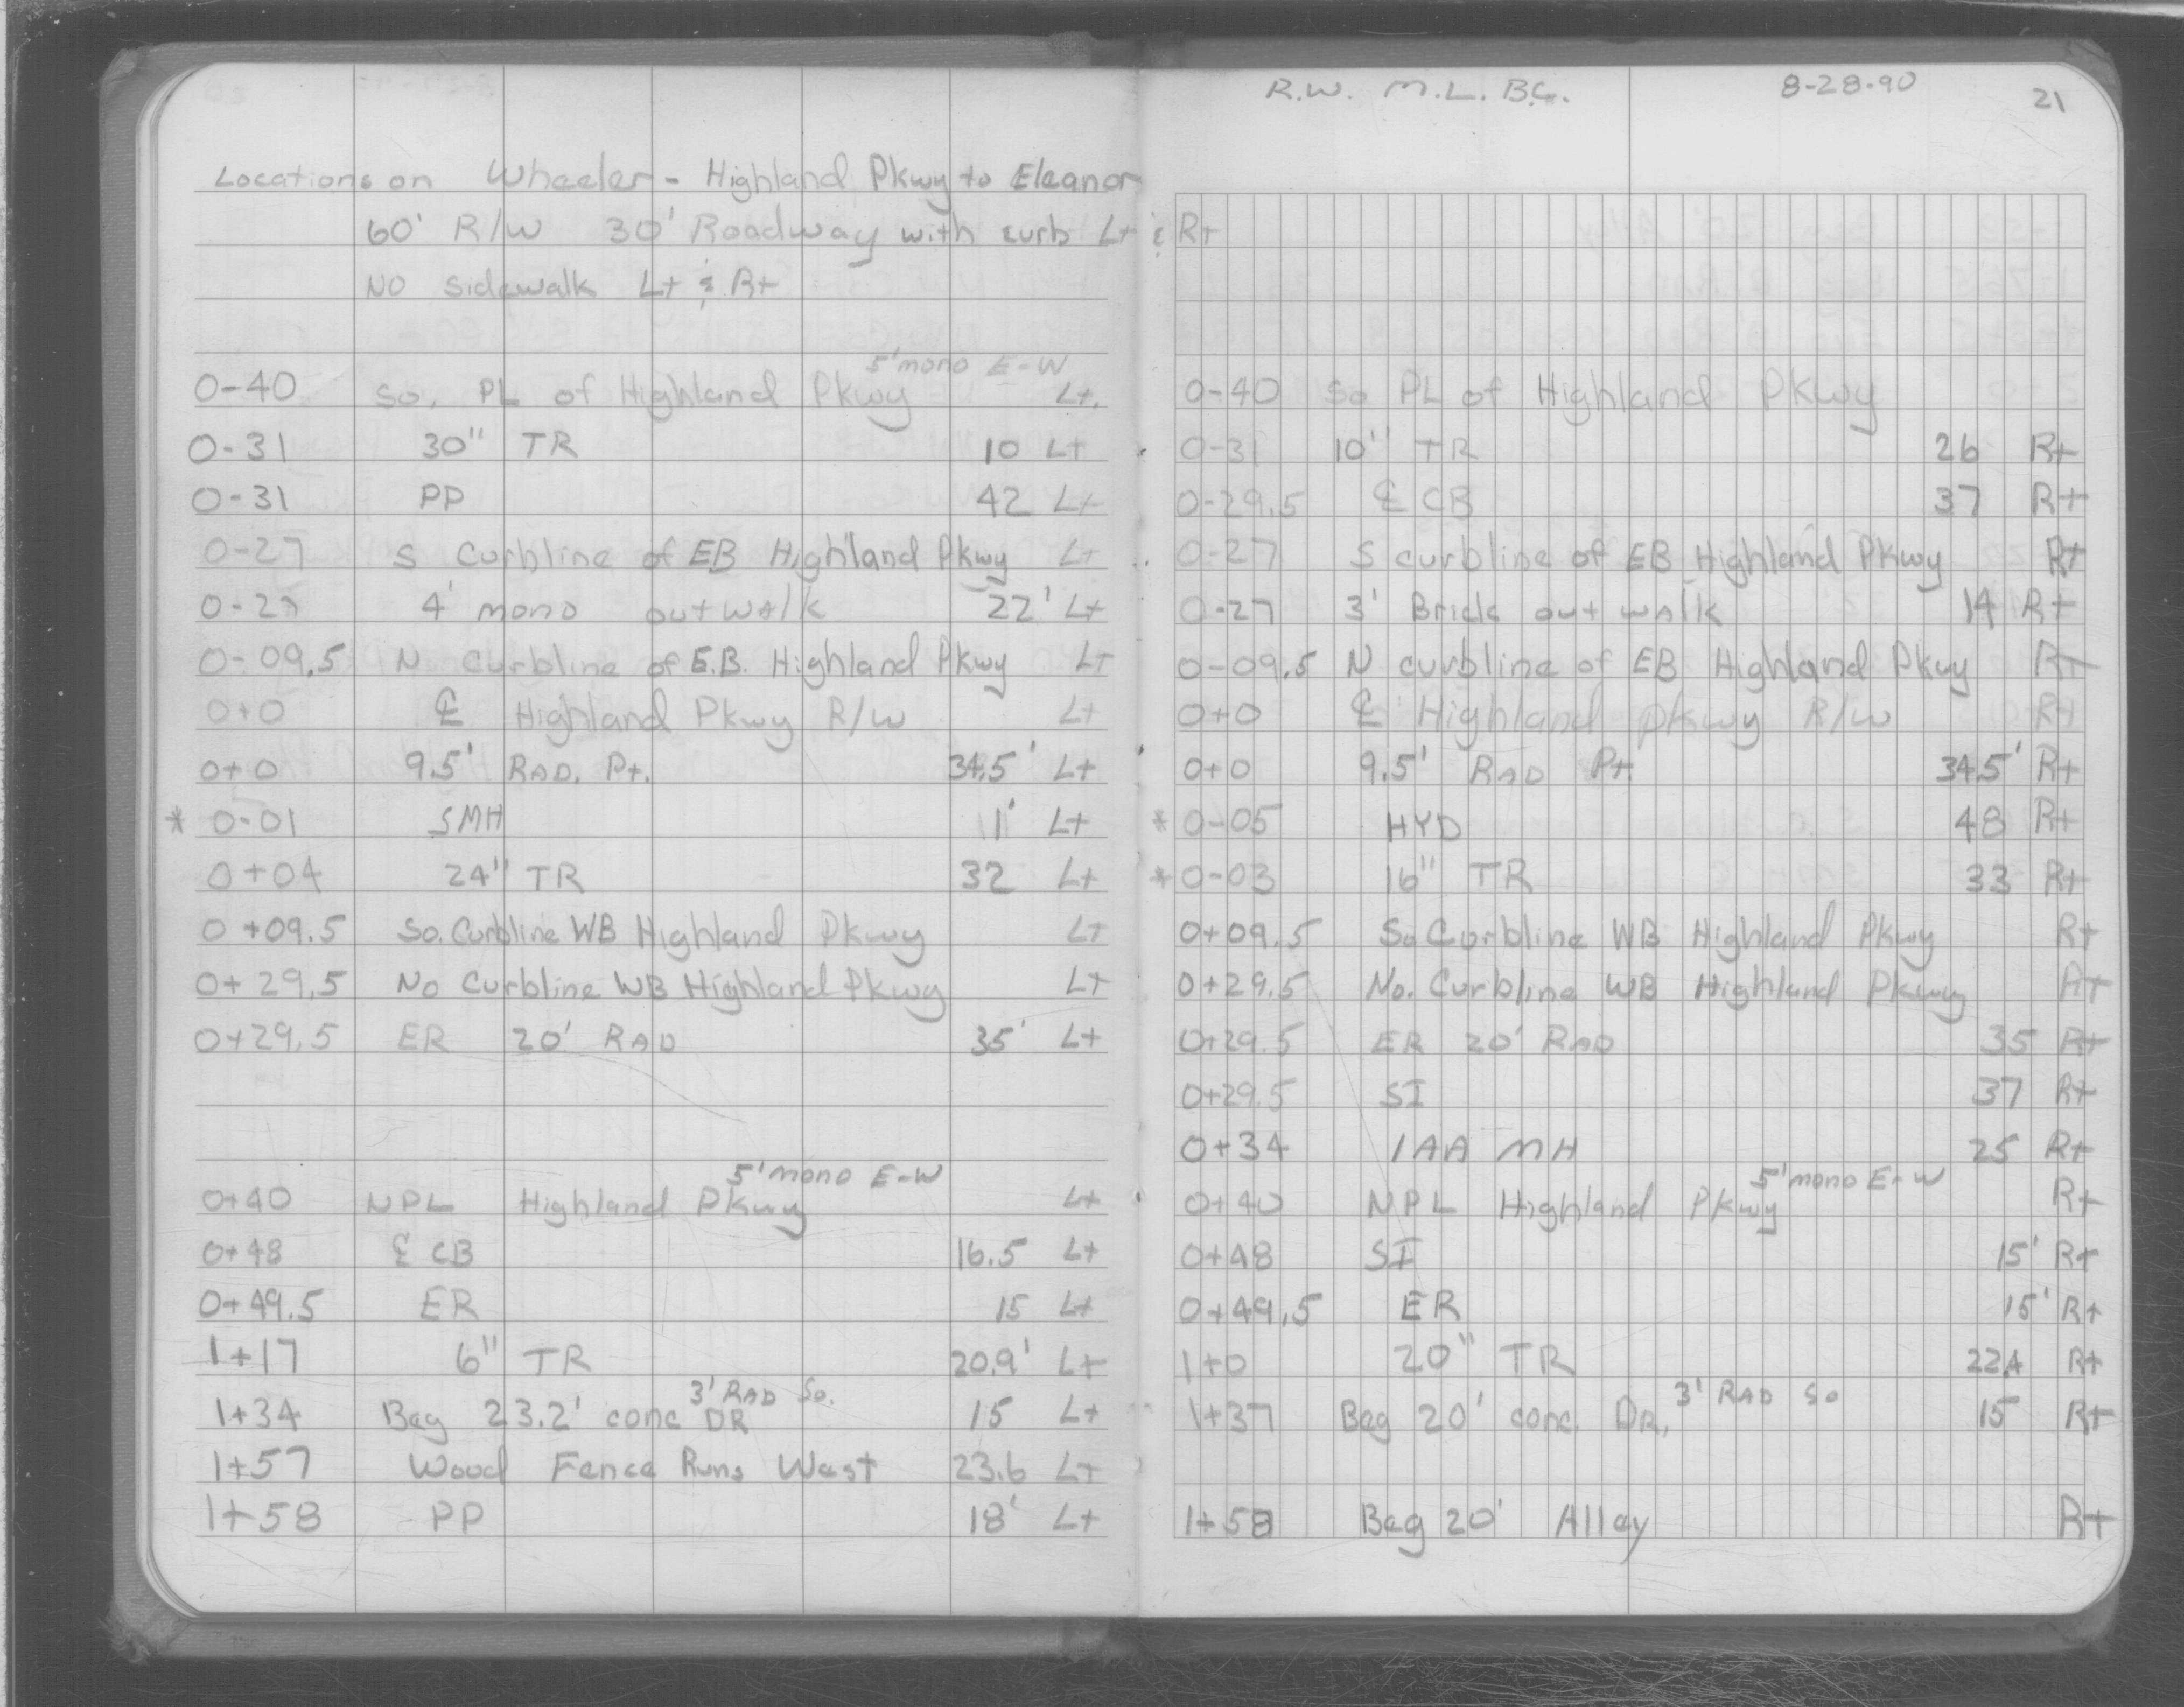 Locations on Wheeler - Highland Pkwy to Eleanor
60' R/W 30' Roadway with curb Lt & Rt
No Sidewalk Lt & Rt
5' mono E-W
0-40 So. PL of Highland Pkwy Lt.
0-31 30" TR 10 Lt
0-31 PP 42 Lt
0-27 S Curbline of EB Highland Pkwy Lt
0-27 4' mono outwalk 22' Lt
0-09.5 N Curbline of E.B. Highland Pkwy Lt
0+0 ℄ Highland Pkwy R/W Lt
0+0 9.5' RAD. Pt. 34.5' Lt
* 0-01 SMH 1' Lt
0+04 24" TR 32 Lt
0+09.5 So. Curbline WB Highland Pkwy Lt
0+29.5 No Curbline WB Highland Pkwy Lt
0+29.5 ER 20' RAD 35' Lt
5' mono E-W
0+40 NPL Highland Pkwy Lt
0+48 ℄ CB 16.5 Lt
0+49.5 ER 15 Lt
1+17 6" TR 20.9' Lt
3' RAD So.
1+34 Beg 23.2' conc DR 15 Lt
1+57 Wood Fence Runs West 23.6 Lt
1+58 PP 18' Lt
R.W. M.L. B.G. 8-28-90 21
0-40 So PL of Highland Pkwy
0-31 10" TR 26 Rt
0-29.5 ℄ CB 37 Rt
0-27 S curbline of EB Highland Pkwy Rt
0-27 3' Brick out walk 14 Rt
0-09.5 N curbline of EB Highland Pkwy Rt
0+0 ℄ Highland Pkwy R/W Rt
0+0 9.5' RAD Pt. 34.5' Rt
* 0-05 HYD 48 Rt
* 0-03 16" TR 33 Rt
0+09.5 So Curbline WB Highland Pkwy Rt
0+29.5 No. Curbline WB Highland Pkwy Rt
0+29.5 ER 20' RAD 35 Rt
0+29.5 SI 37 Rt
0+34 1AA MH 25 Rt
5' mono E-W
0+40 NPL Highland Pkwy Rt
0+48 SI 15' Rt
0+49.5 ER 15' Rt
1+0 20" TR 22.4 Rt
3' RAD So
1+37 Beg 20' conc. DR. 15 Rt
1+58 Beg 20' Alley Rt